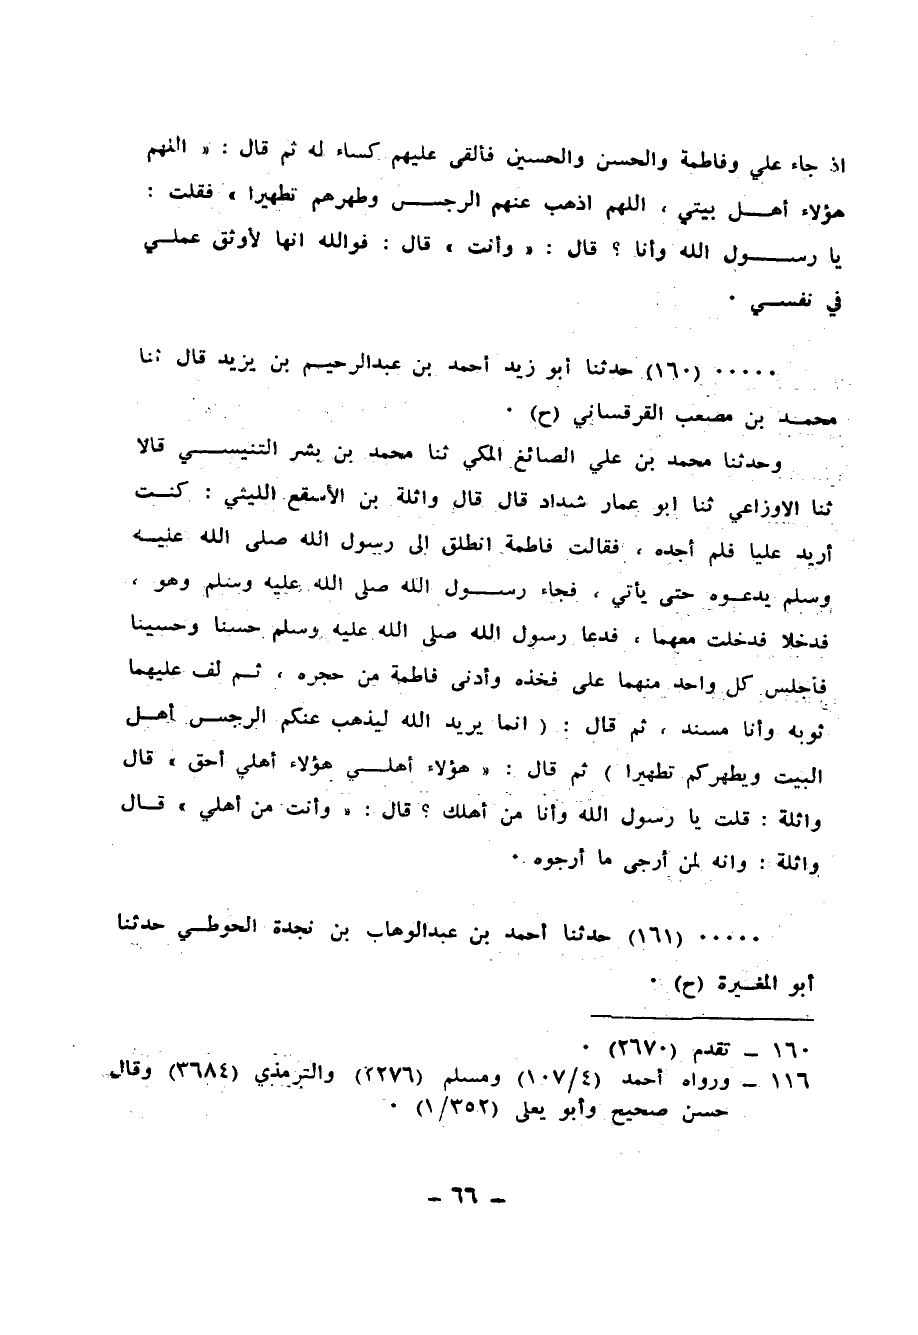 اذ جاء علي وفاطمة والحسن والحسين فألقى عليهم كساء له ثم قال : « اللهم
هؤلاء أهـــل بيتي ، اللهم اذهب عنهم الرجـــس وطهرهم تطهيرا » فقلت :
يا رســـــول الله وأنا ؟ قال : « وأنت » قال : فوالله انها لأوثق عملـي
في نفســي ٠
٠٠٠٠٠ (١٦٠) حدثنا أبو زيد أحمد بن عبدالرحيــم بن يزيد قال ثنا
محمــد بن مصعب القرقساني (ح) ٠
وحدثنا محمد بن علي الصائغ المكي ثنا محمد بن بشر التنيســـي قالا
ثنا الاوزاعي ثنا ابو عمار شداد قال قال واثلة بن الأسقع الليثي : كنــت
أريد عليا فلم أجده ، فقالت فاطمة انطلق الى رسول الله صلى الله عليــه
وسلم يدعــوه حتى يأتي ، فجاء رســـول الله صلى الله عليه وسلم وهو ،
فدخلا فدخلت معهما ، فدعا رسول الله صلى الله عليه وسلم حسنا وحسينا
فأجلس كل واحد منهما على فخذه وأدنى فاطمة من حجره ، ثــم لف عليهما
ثوبه وأنا مسند ، ثم قال : ( انما يريد الله ليذهب عنكم الرجس أهــل
البيت ويطهركم تطهيرا ) ثم قال : « هؤلاء أهلـــي هؤلاء أهلي أحق » قال
واثلة : قلت يا رسول الله وأنا من أهلك ؟ قال : « وأنت من أهلي » قــال
واثلة : وانه لمن أرجى ما أرجوه ٠
٠٠٠٠٠ (١٦١) حدثنا أحمد بن عبدالوهاب بن نجدة الحوطــي حدثنا
أبو المغــيرة (ح) ٠
١٦٠ ــ تقدم (٢٦٧٠) ٠
١١٦ ــ ورواه أحمد (١٠٧/٤) ومسلم (٢٢٧٦) والترمذي (٣٦٨٤) وقال
حسن صحيح وأبو يعلى (١/٣٥٢) ٠
ــ ٦٦ ــ